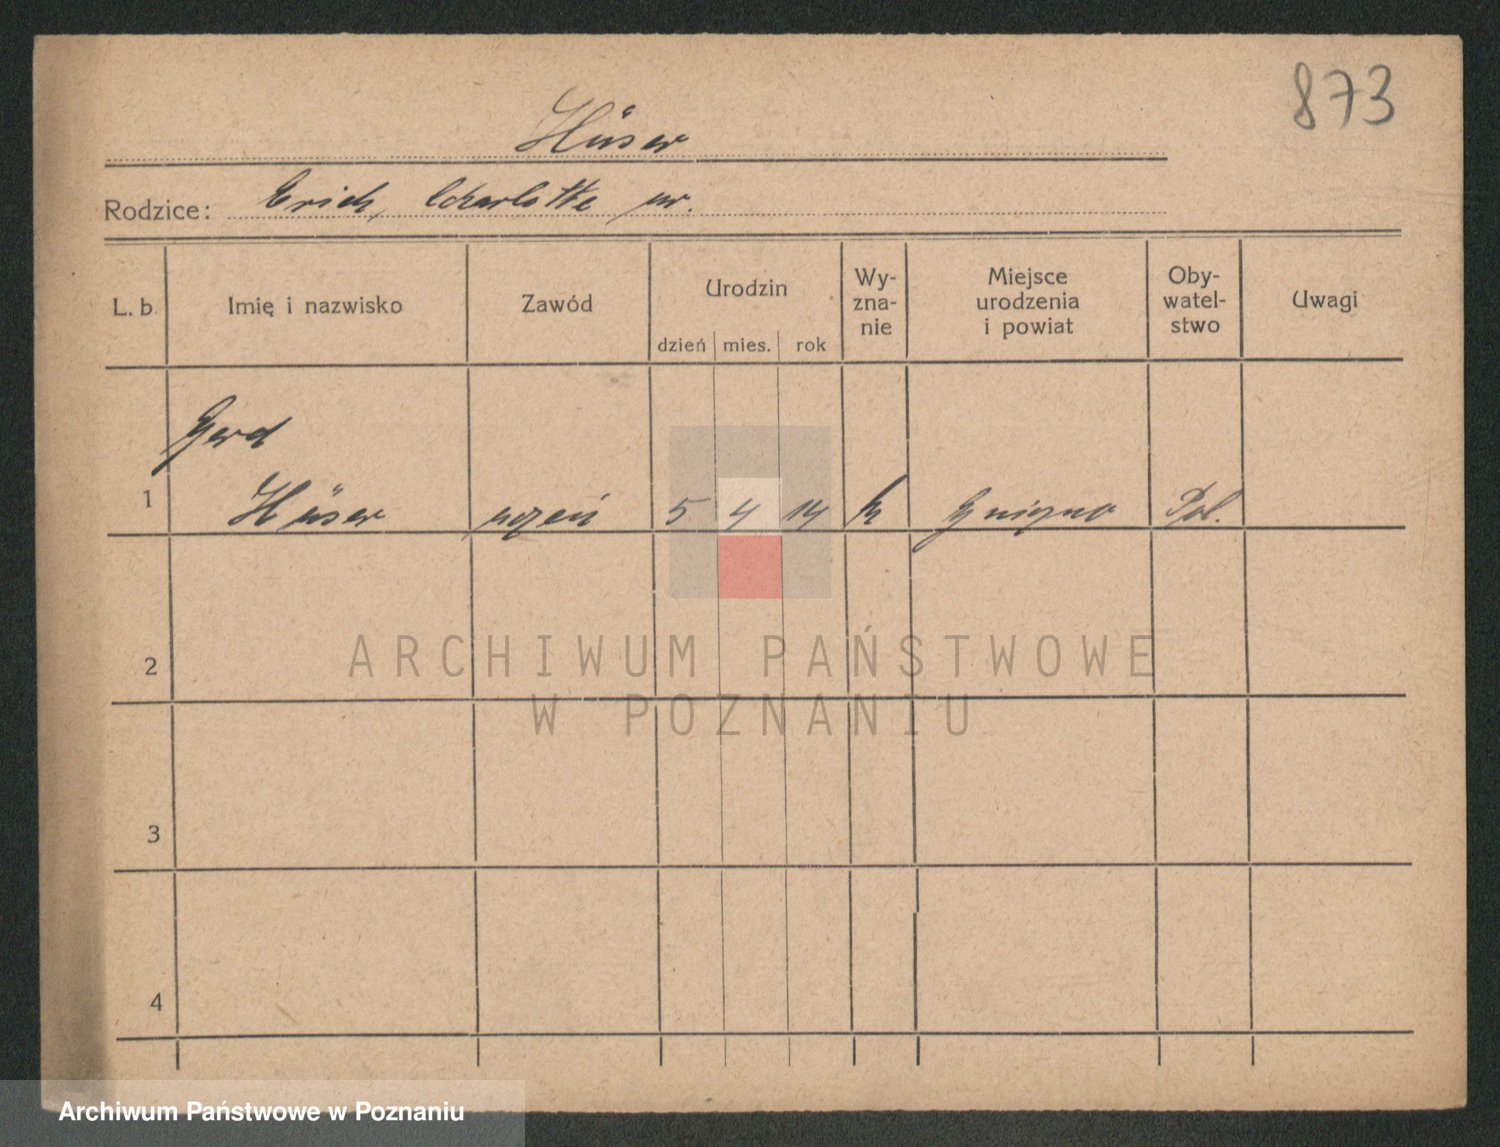 873
Hüser
Rodzice: Erich, Charlotte ur.
L. b.
Imię i nazwisko
Zawód
Urodzin
dzień mies. rok
Wy-
zna-
nie
Miejsce
urodzenia
i powiat
Oby-
watel-
stwo
Uwagi
Gerd
1 Hüser uczeń 5 4 14 k Gniezno Pol.
2
ARCHIWUM PAŃSTWOWE
W POZNANIU
3
4
Archiwum Państwowe w Poznaniu